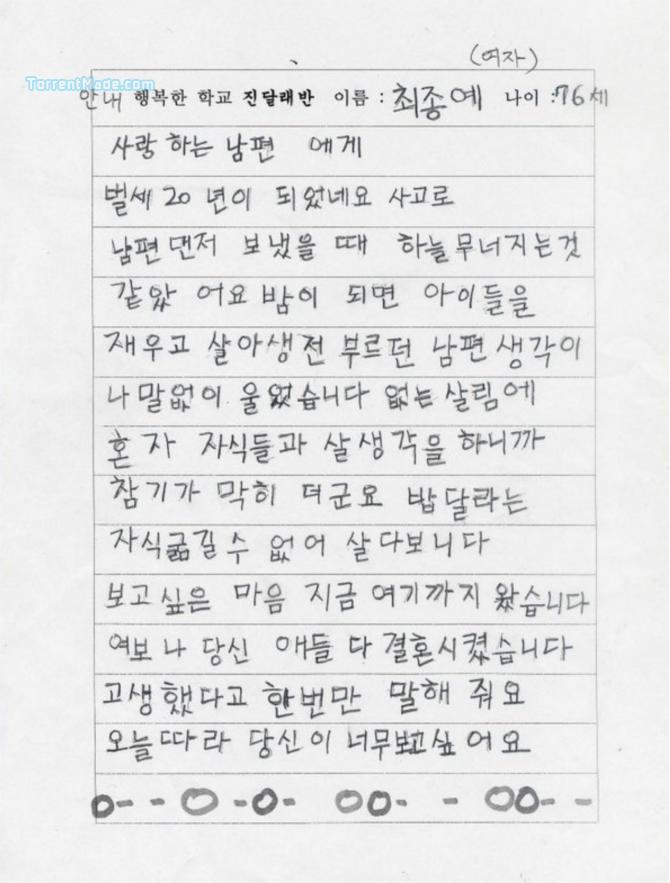 (여자)
TorrentMade.com
안내 행복한 학교 진달래반 이름 : 최종예 나이 : 76세
사랑 하는 남편 에게
벌세 20 년이 되었네요 사고로
남편 먼저 보냈을 때 하늘무너지는것
같았 어요 밤이 되면 아이들을
재우고 살아생전 부르던 남편 생각이
나 말없이 울었습니다 없는 살림에
혼자 자식들과 살생각을 하니까
참기가 막히 더군요 밥달라는
자식굶길수 없어 살다보니다
보고싶은 마음 지금 여기까지 왔습니다
여보 나 당신 애들 다 결혼시켰습니다
고생했다고 한번만 말해 줘요
오늘따라 당신이 너무보고싶어요